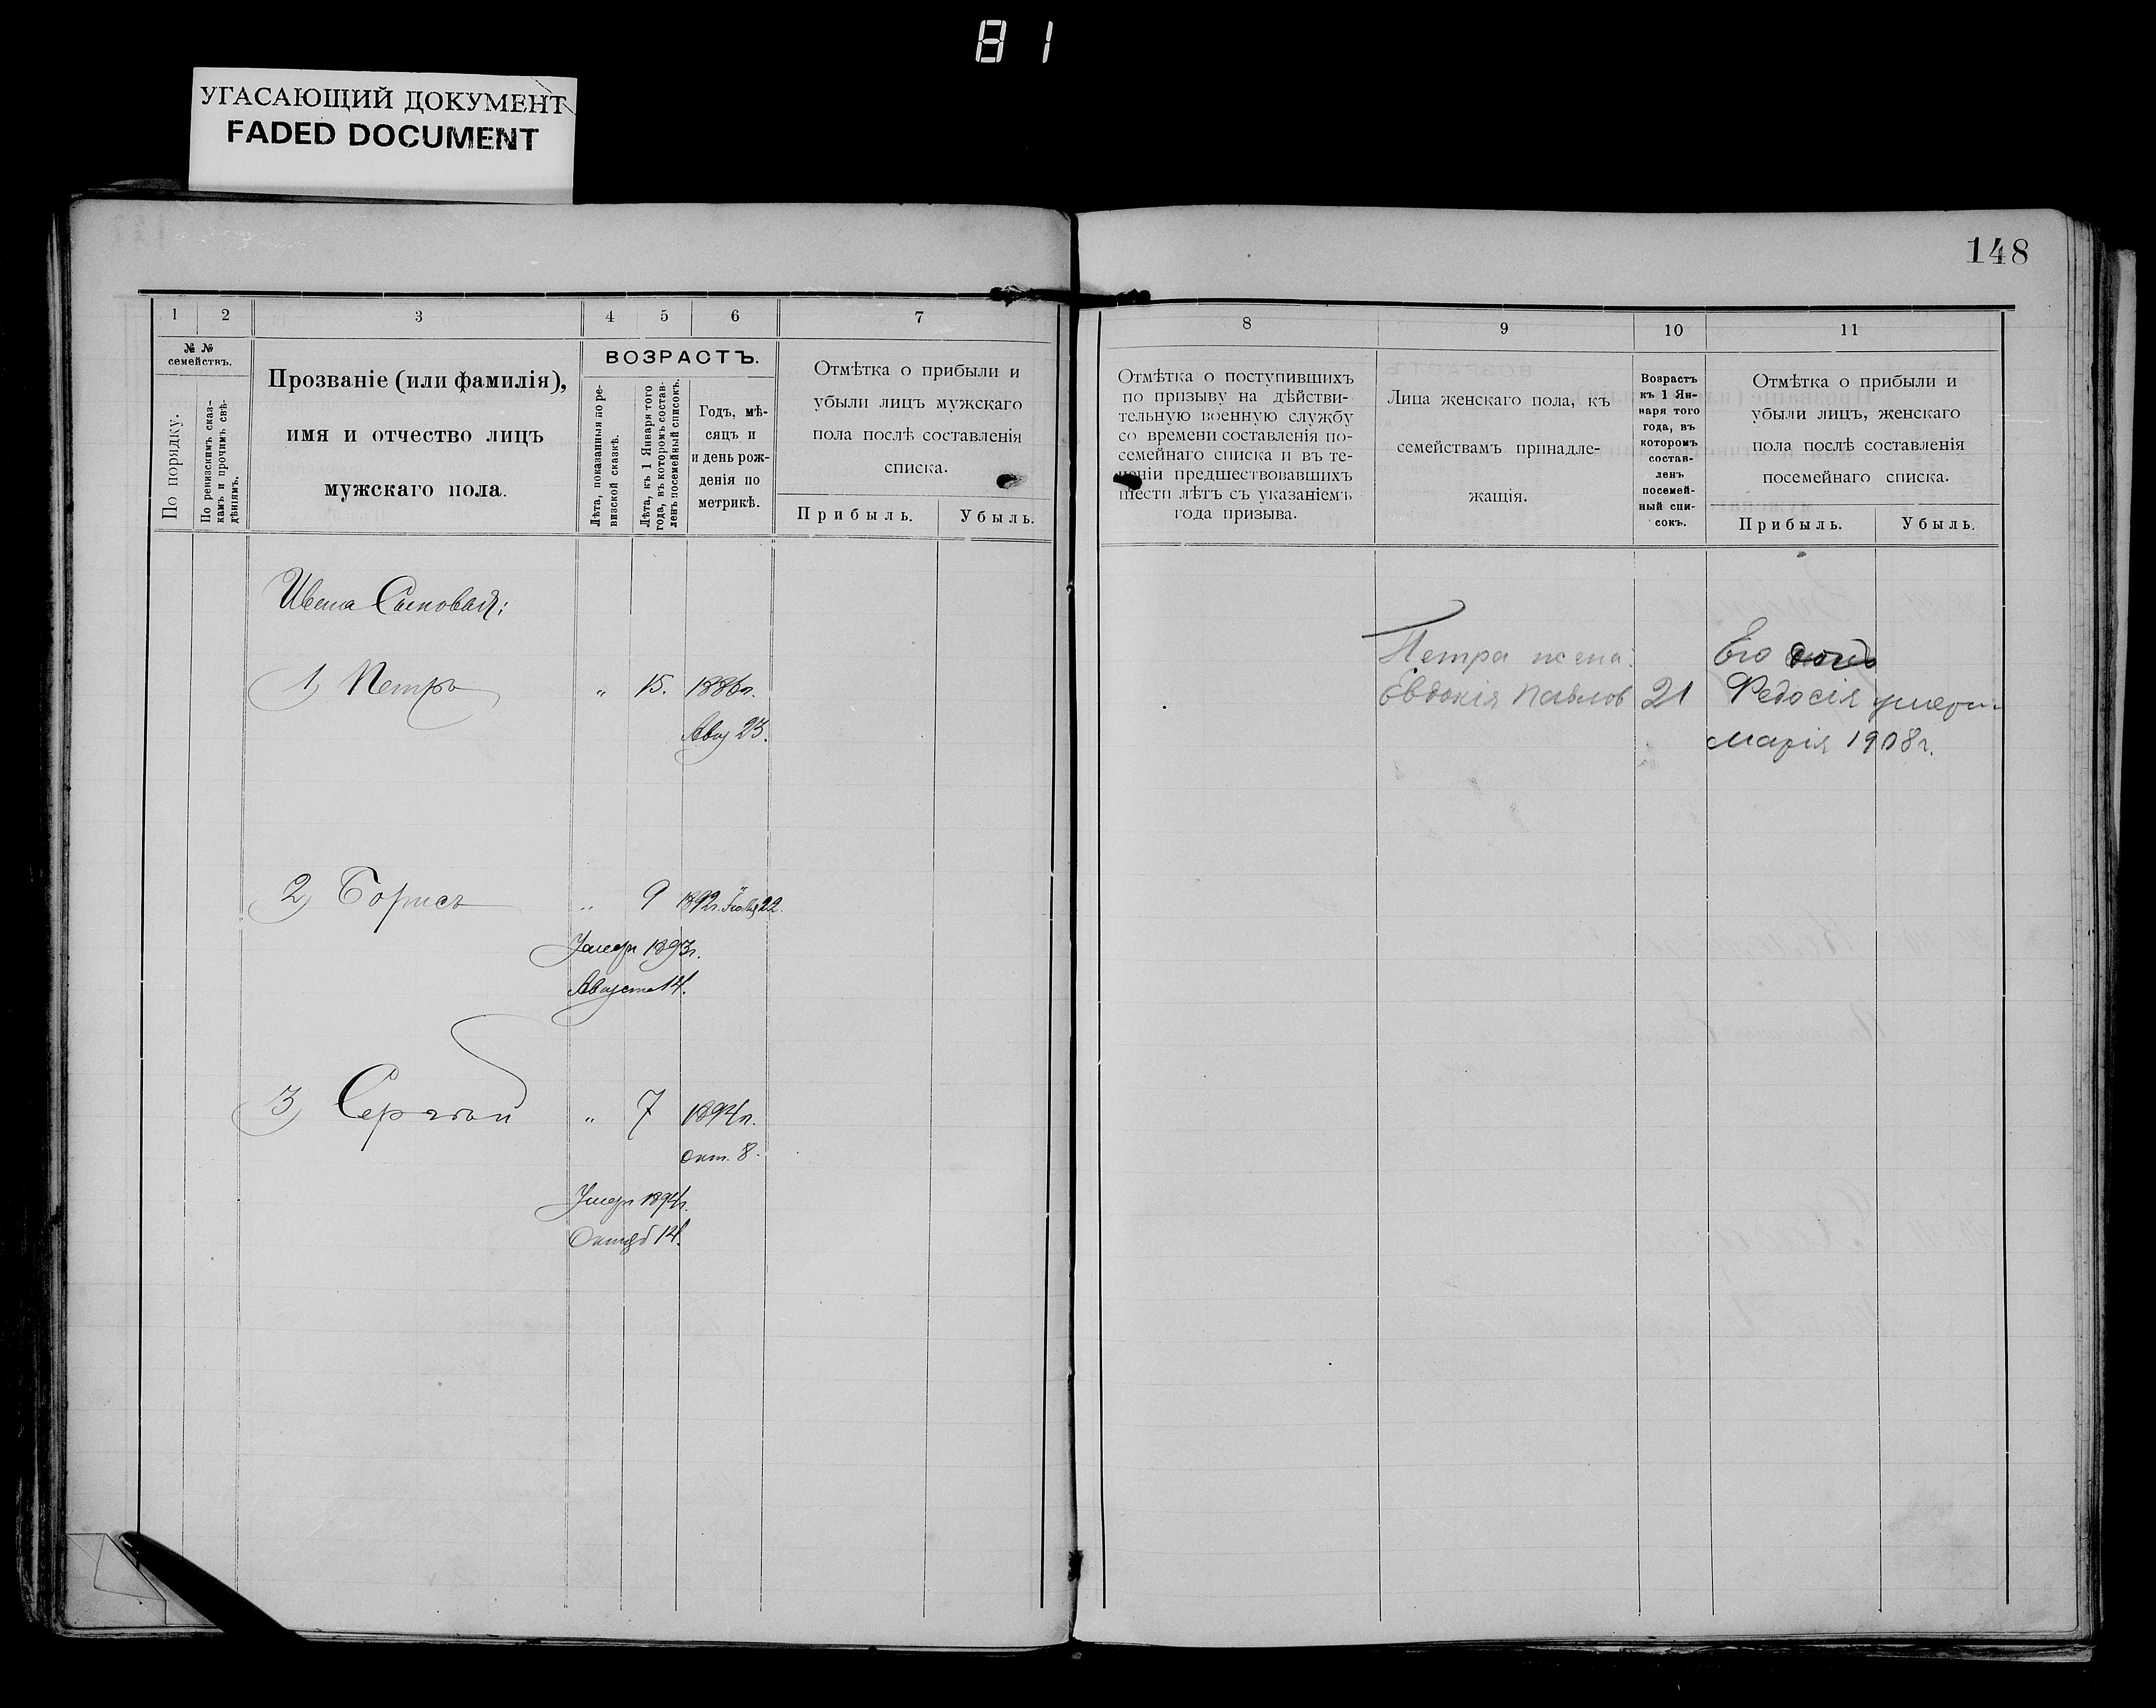 81
УГАСАЮЩИЙ ДОКУМЕНТ
FADED DOCUMENT
148
1 2 3 4 5 6 7
№ №
семействъ.
По порядку.
По ревизскимъ сказ-
камъ и прочимъ свѣ-
дѣніямъ.
Прозваніе (или фамилія),
имя и отчество лицъ
мужскаго пола.
ВОЗРАСТЪ.
Лѣта, показанныя по ре-
визской сказкѣ.
Лѣта, къ 1 Января того
года, въ которомъ состав-
ленъ посемейный списокъ.
Годъ, мѣ-
сяцъ и
и день рож-
денія по
метрикѣ.
Отмѣтка о прибыли и
убыли лицъ мужскаго
пола послѣ составленія
списка.
Прибыль. Убыль.
8 9 10 11
Отмѣтка о поступившихъ
по призыву на дѣйстви-
тельную военную службу
со времени составленія по-
семейнаго списка и въ те-
ченіи предшествовавшихъ
шести лѣтъ съ указаніемъ
года призыва.
Лица женскаго пола, къ
семействамъ принадле-
жащія.
Возрастъ
къ 1 Ян-
варя того
года, въ
которомъ
состав-
ленъ
посемей-
ный спи-
сокъ.
Отмѣтка о прибыли и
убыли лицъ, женскаго
пола послѣ составленія
посемейнаго списка.
Прибыль. Убыль.
Ивана Сыновья:
1) Петръ " 15. 1886г.
Авг 23.
2) Борисъ " 9 1892г. Іюля 22.
Умеръ 1893г.
Августа 14.
3) Сергѣй " 7 1894г.
Окт. 8.
Умеръ 1894г.
Октяб 14.
Петра жена
Евдокія Павлов 21
Его
Федосія умерла
Марія 1908г.